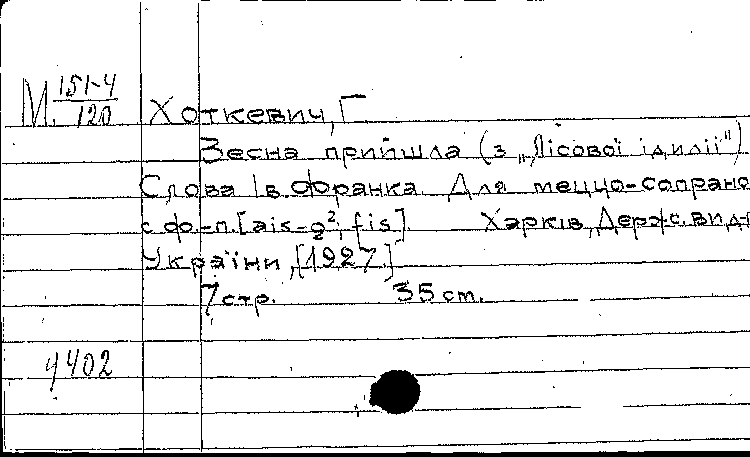 М 151-4/120 Хоткевич, Г.
Весна прийшла (з „Лісової ідилії")
Слова Ів. Франка. Для меццо-сопрано
с ф.-п. [ais-g²; fis]. Харків, Держ. вид-
України, [1927.]
7 стр. 35 ст.
4402